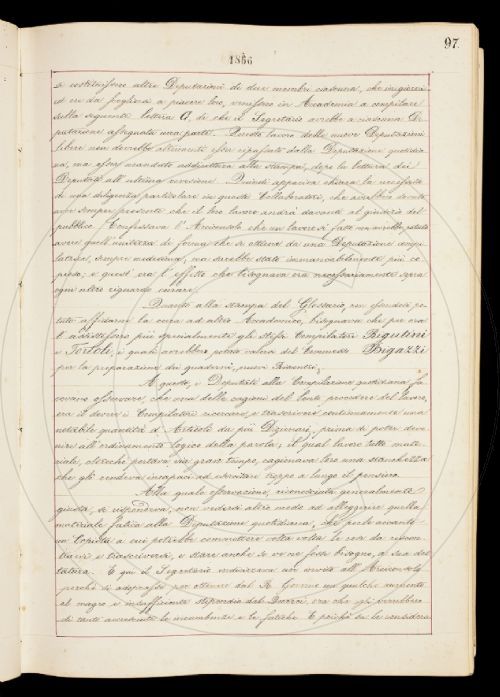 97.
1866
si costituissero altre Deputazioni di due membri ciascuna, che in giorni
ed ore da scegliersi a piacer loro, venissero in Accademia a compilare
sulla seguente lettera C, di che il Segretario avrebbe a ciascuna De-
putazione assegnata una parte. Questo lavoro delle nuove Deputazioni
libere non dovrebbe altrimenti esser ripassato dalla Deputazione quotidia-
na, ma esser mandato addirittura alla stampa, dopo la lettura dei
Deputati all'ultima revisione. Quindi appariva chiara la necessità
di una diligenza particolare in questi Collaboratori, che avrebbero dovuto
aver sempre presente che il loro lavoro andrà davanti al giudizio del
pubblico. Confessava l'Arciconsolo che un lavoro sì fatto non avrebbe potuto
avere quell'unitezza di forma che si ottiene da una Deputazione compi-
latrice, sempre medesima; ma sarebbe stato immancabilmente più co-
pioso, e quest'era l'effetto che bisognava ora necessariamente sopra
ogni altro riguardo curare.
Quanto alla stampa del Glossario, non essendosi po-
tuto affidarne la cura ad altro Accademico, bisognava che per ora
l'assistessero più specialmente gli stessi Compilatori Rigutini
e Tortoli, i quali avrebbero potuto valersi del Commesso Bigazzi
per la preparazione dei quaderni, nuovi riscontri,
A questo, i Deputati alla Compilazione quotidiana fa-
cevano osservare, che una delle cagioni del lento procedere del lavoro,
era il dovere i Compilatori ricercare, e trascrivere continuamente una
notabile quantità d'Articoli da più Dizionari, prima di poter deve-
nire all'ordinamento logico della parola; il qual lavoro tutto mate-
riale, oltreché portava via gran tempo, cagionava loro una stanchezza
che gli rendeva incapaci ad esercitare troppo a lungo il pensiero.
Alla quale osservazione, riconosciuta generalmente
giusta, si rispondeva, non vedersi altro modo ad alleggerire quella
materiale fatica alla Deputazione quotidiana, che porle avanti
un Copista a cui potrebbe commettere volta volta le cose da riscon-
trarsi e trascriversi, e stare anche se ve ne fosse bisogno, a sua det-
tatura. E qui il Segretario indirizzava un invito all'Arciconsolo
perché si adoprasse per ottenere dal R. Governo un qualche aumento
al magro e insufficiente stipendio del Bigazzi, ora che gli verrebbero
di tanto accresciute le incumbenze e le fatiche. E poiché sa le considera-